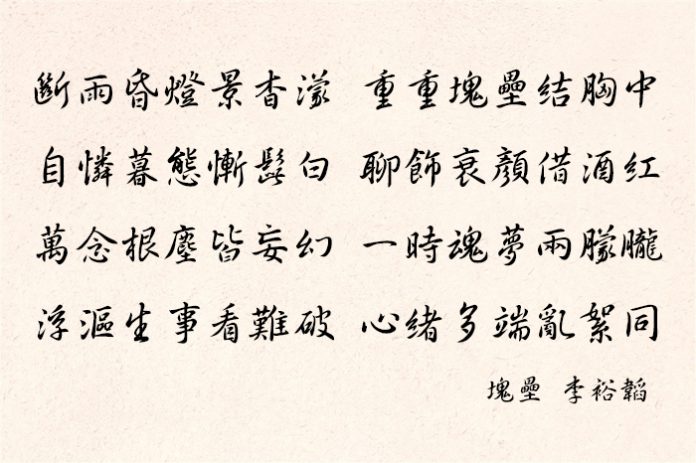 斷雨昏燈景杳濛 重重塊壘結胸中
自憐暮態慚髭白 聊飾衰顏借酒紅
萬念根塵皆妄幻 一時魂夢兩朦朧
浮漚生事看難破 心緒多端亂絮同
塊壘 李裕韜